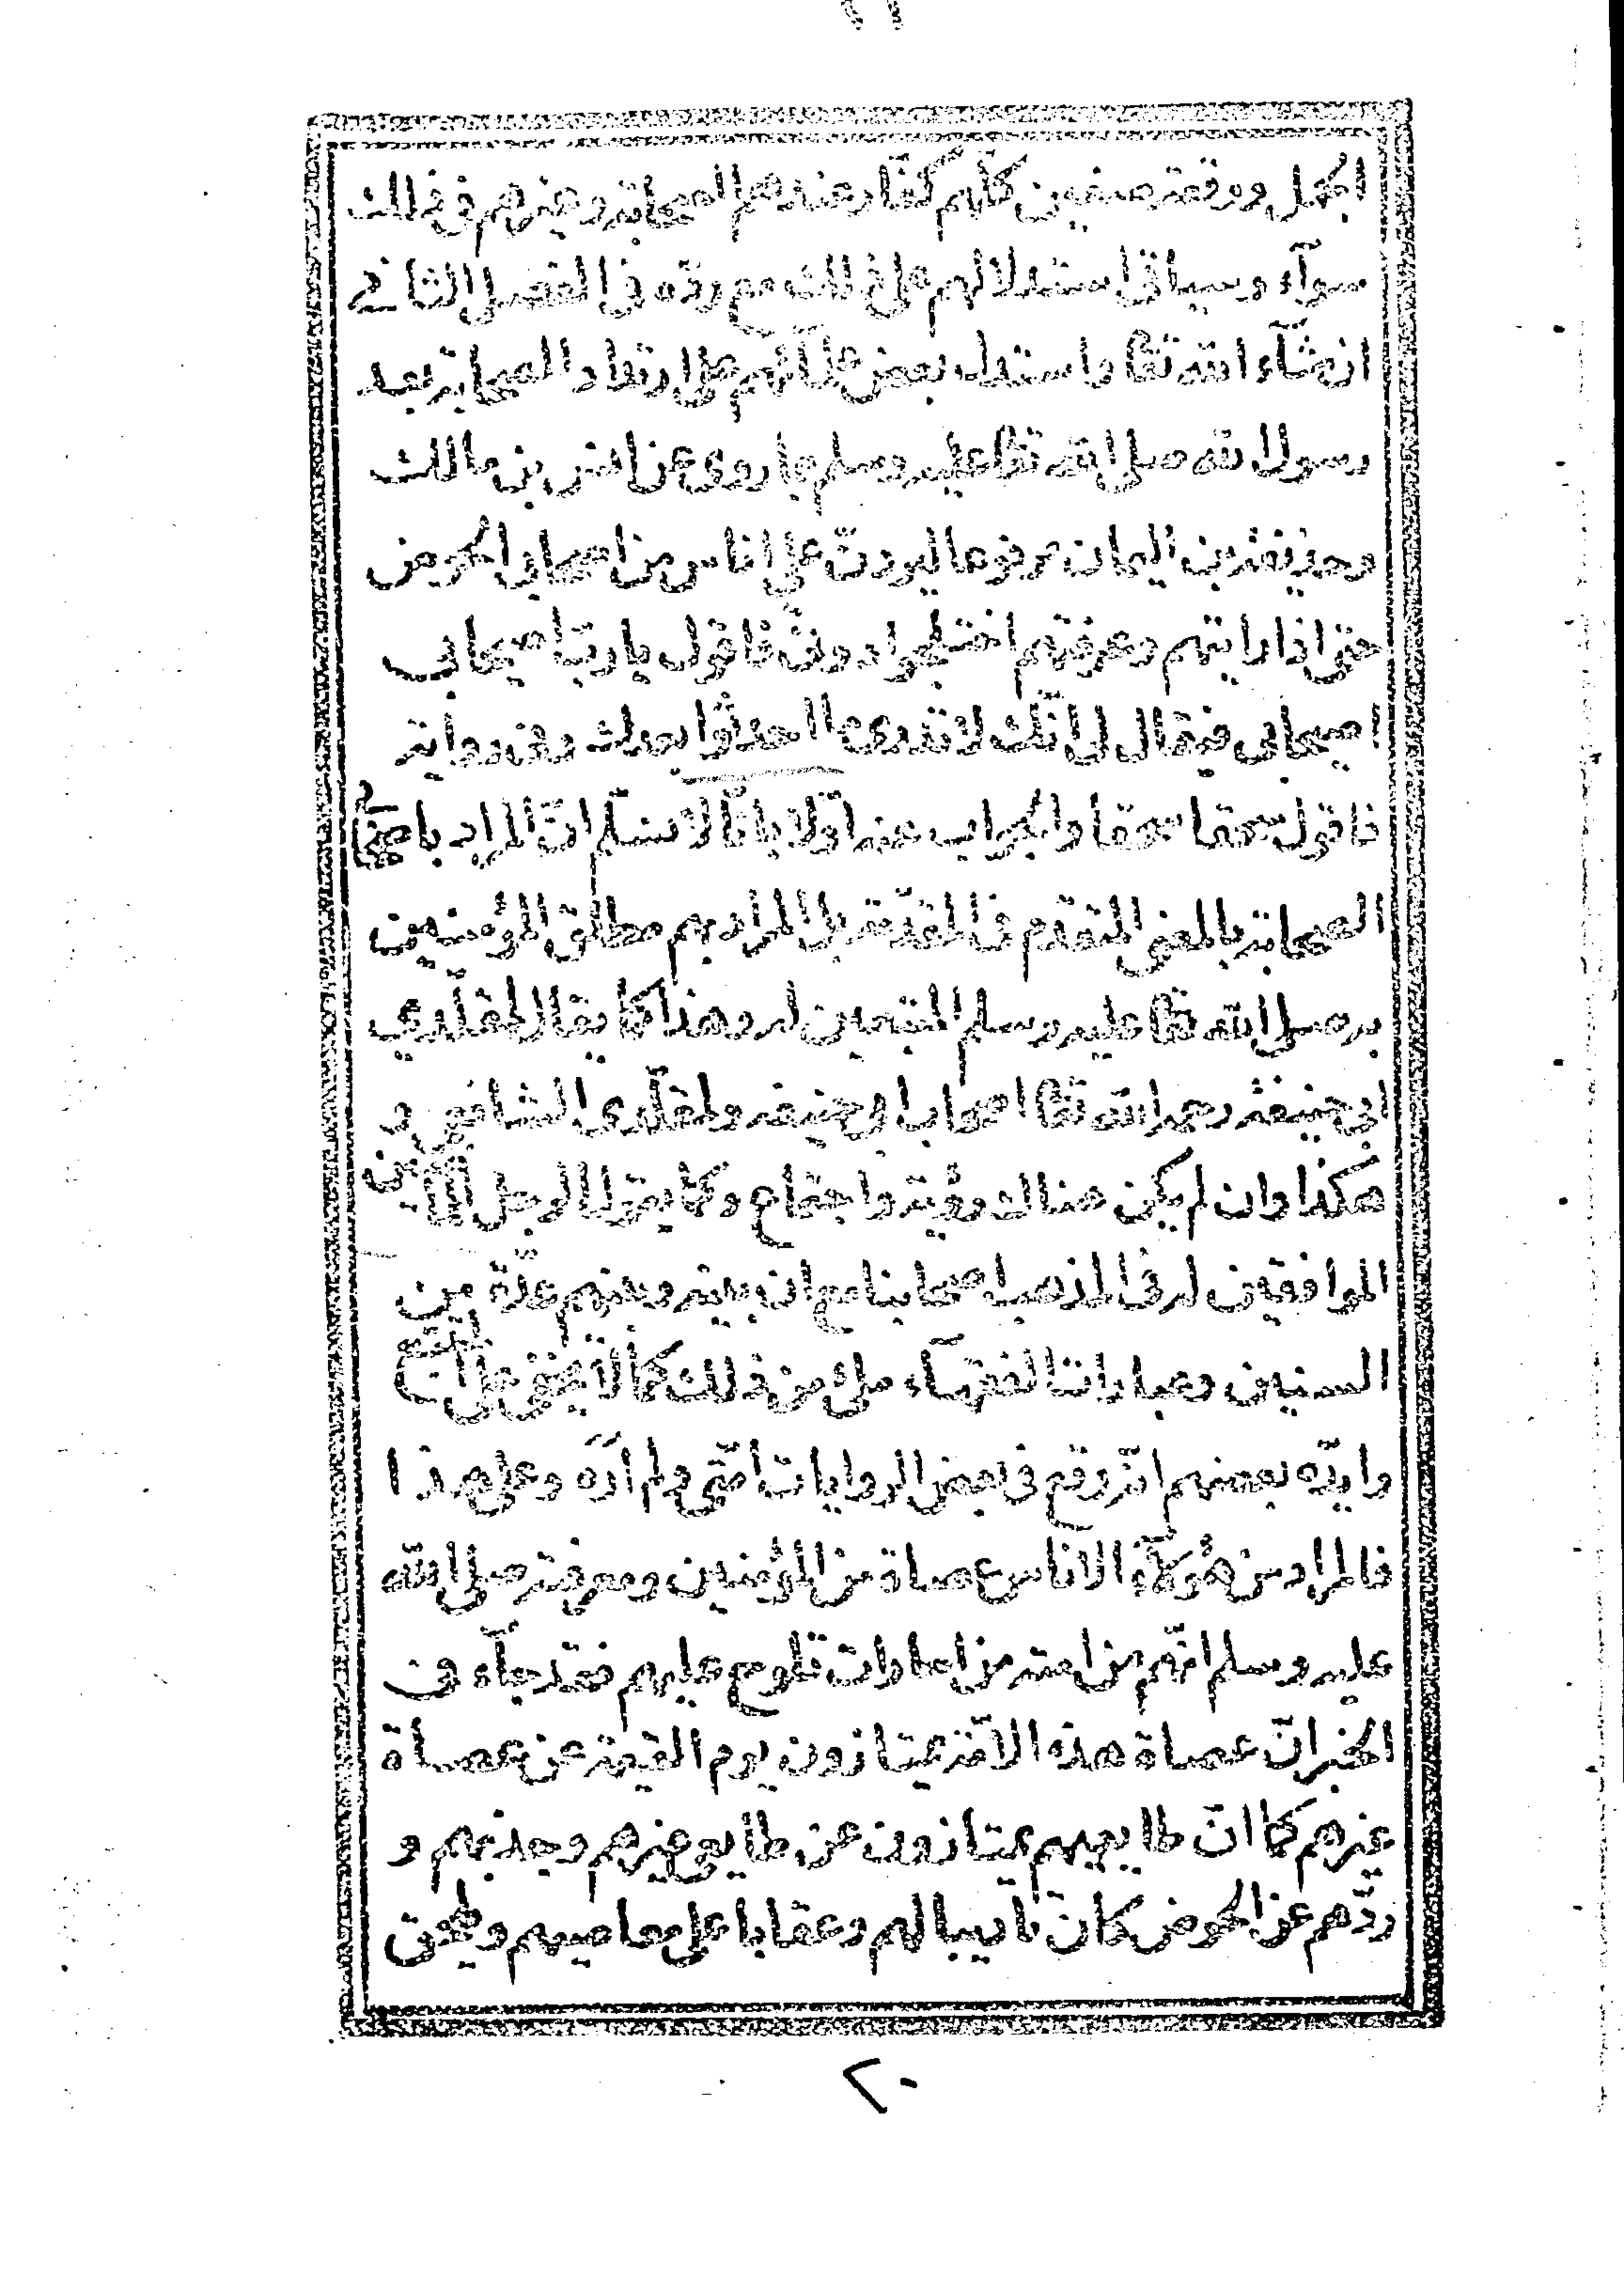 الجمل ووقعة صفين كلهم كفار عندهم الصحابة وغيرهم في ذلك
سوآء وسياتي استدلالهم على ذلك مع ردّه في الفصل الثاني
ان شآء الله تعا واستدل بعض علمآئهم على ارتداد الصحابة بعد
رسول الله صلى الله تعا عليه وسلم بما روى عن انس بن مالك
وحذيفة بن اليمان مرفوعا ليردنّ على اناس من اصحابي الحوض
حتى اذا رايتهم وعرفتهم اختلجوا دوني فاقول يا ربّ اصحابي
اصحابي فيقال لي انّك لا تدرى ما احدثوا بعدك وفي رواية
فاقول سحقا سحقا والجواب عنه اوّلا بانّا لا نسلّم انّ المراد باصحابي
الصحابة بالمعنى المتقدم في المقدّمة بل المراد بهم مطلق المؤمنين
به صلى الله تعا عليه وسلم المتبعين له وهذا كما يقال لمقلّدي
ابي حنيفة رحمه الله تعا اصحاب ابي حنيفة ولمقلّدى الشافعي و
هكذا وان لم يكن هناك رؤية واجتماع وكما يقول الرجل للماضين
الموافقين له في المذهب اصحابنا مع ان بينه وبينهم عدّة من
السنين وعبارات الفقهآء ملئ من ذلك كما لا يخفى على المتتبع
وايّده بعضهم انّه وقع في بعض الروايات امّتي ولم ارَه وعلى هذا
فالمراد من هؤلآء الاناس عصاة من المؤمنين ومعرفته صلى الله
عليه وسلم انّهم من امته من امارات تلوح عليهم فقد جآء في
الخبر انّ عصاة هذه الامّة يمتازون يوم القيمة عن عصاة
غيرهم كما انّ طايعيهم يمتازون عن طايعي غيرهم وجذبهم و
ردّهم عن الحوض كان تأديبا لهم وعقابا على معاصيهم
٢٠